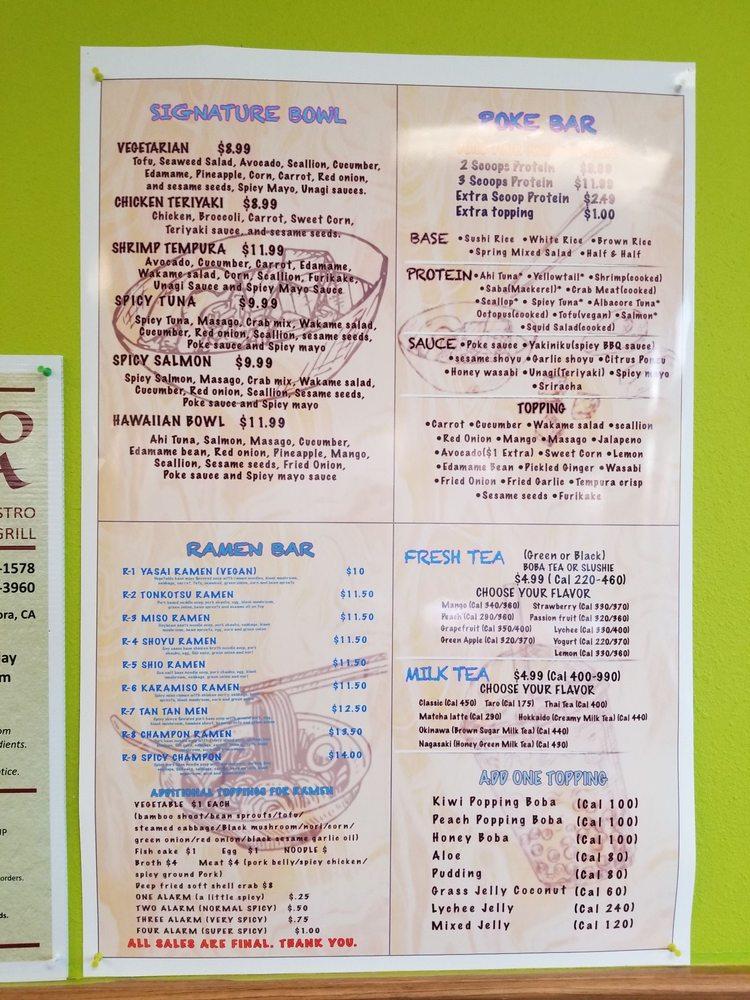 SIGNATURE BOWL
VEGETARIAN $8.99
Tofu, Seaweed Salad, Avocado, Scallion, Cucumber,
Edamame, Pineapple, Corn, Carrot, Red onion,
and sesame seeds, Spicy Mayo, Unagi sauces.
CHICKEN TERIYAKI $8.99
Chicken, Broccoli, Carrot, Sweet Corn,
Teriyaki sauce, and sesame seeds.
SHRIMP TEMPURA $11.99
Avocado, Cucumber, Carrot, Edamame,
Wakame salad, Corn, Scallion, Furikake,
Unagi Sauce and Spicy Mayo Sauce
SPICY TUNA $9.99
Spicy Tuna, Masago, Crab mix, Wakame salad,
Cucumber, Red onion, Scallion, sesame seeds,
Poke sauce and Spicy mayo
SPICY SALMON $9.99
Spicy Salmon, Masago, Crab mix, Wakame salad,
Cucumber, Red onion, Scallion, Sesame seeds,
Poke sauce and Spicy mayo
HAWAIIAN BOWL $11.99
Ahi Tuna, Salmon, Masago, Cucumber,
Edamame bean, Red onion, Pineapple, Mango,
Scallion, Sesame seeds, Fried Onion,
Poke sauce and Spicy mayo sauce
POKE BAR
2 Scoops Protein
3 Scoops Protein $11.99
Extra Scoop Protein $2.49
Extra topping $1.00
BASE •Sushi Rice •White Rice •Brown Rice
•Spring Mixed Salad •Half & Half
PROTEIN •Ahi Tuna* •Yellowtail* •Shrimp(cooked)
•Saba(Mackerel)* •Crab Meat(cooked)
•Scallop* • Spicy Tuna* •Albacore Tuna*
Octopus(cooked) •Tofu(vegan) •Salmon*
•Squid Salad(cooked)
SAUCE •Poke sauce •Yakiniku(spicy BBQ sauce)
•sesame shoyu •Garlic shoyu •Citrus Ponzu
•Honey wasabi •Unagi(Teriyaki) •Spicy mayo
•Sriracha
TOPPING
•Carrot •Cucumber •Wakame salad •scallion
•Red Onion •Mango •Masago •Jalapeno
•Avocado($1 Extra) •Sweet Corn •Lemon
•Edamame Bean •Pickled Ginger •Wasabi
•Fried Onion •Fried Garlic •Tempura crisp
•Sesame seeds •Furikake
RAMEN BAR
R-1 YASAI RAMEN (VEGAN) $10
R-2 TONKOTSU RAMEN $11.50
R-3 MISO RAMEN $11.50
R-4 SHOYU RAMEN $11.50
R-5 SHIO RAMEN $11.50
R-6 KARAMISO RAMEN $11.50
R-7 TAN TAN MEN $12.50
R-8 CHAMPON RAMEN $13.50
R-9 SPICY CHAMPON $14.00
ADDITIONAL TOPPINGS FOR RAMEN
VEGETABLE $1 EACH
(bamboo shoot/bean sprouts/tofu/
steamed cabbage/Black mushroom/nori/corn/
green onion/red onion/black sesame garlic oil)
Fish cake $1 Egg $1 NOODLE $
Broth $4 Meat $4 (pork belly/spicy chicken/
spicy ground Pork)
Deep fried soft shell crab $8
ONE ALARM (a little spicy) $.25
TWO ALARM (NORMAL SPICY) $.50
THREE ALARM (VERY SPICY) $.75
FOUR ALARM (SUPER SPICY) $1.00
ALL SALES ARE FINAL. THANK YOU.
FRESH TEA (Green or Black)
BOBA TEA OR SLUSHIE
$4.99 ( Cal 220-460)
CHOOSE YOUR FLAVOR
Mango (Cal 340/360) Strawberry (Cal 330/370)
Peach (Cal 290/360) Passion fruit (Cal 320/360)
Grapefruit (Cal 350/400) Lychee (Cal 330/400)
Green Apple (Cal 320/370) Yogurt (Cal 220/370)
Lemon (Cal 330/360)
MILK TEA $4.99 (Cal 400-990)
CHOOSE YOUR FLAVOR
Classic (Cal 450) Taro (Cal 175) Thai Tea (Cal 400)
Matcha latte (Cal 290) Hokkaido (Creamy Milk Tea) (Cal 440)
Okinawa (Brown Sugar Milk Tea) (Cal 440)
Nagasaki (Honey Green Milk Tea) (Cal 430)
ADD ONE TOPPING
Kiwi Popping Boba (Cal 100)
Peach Popping Boba (Cal 100)
Honey Boba (Cal 100)
Aloe (Cal 80)
Pudding (Cal 80)
Grass Jelly Coconut (Cal 60)
Lychee Jelly (Cal 240)
Mixed Jelly (Cal 120)
O
A
STRO
GRILL
-1578
-3960
ora, CA
ay
m
om
dients.
tice.
UP
orders.
ds.